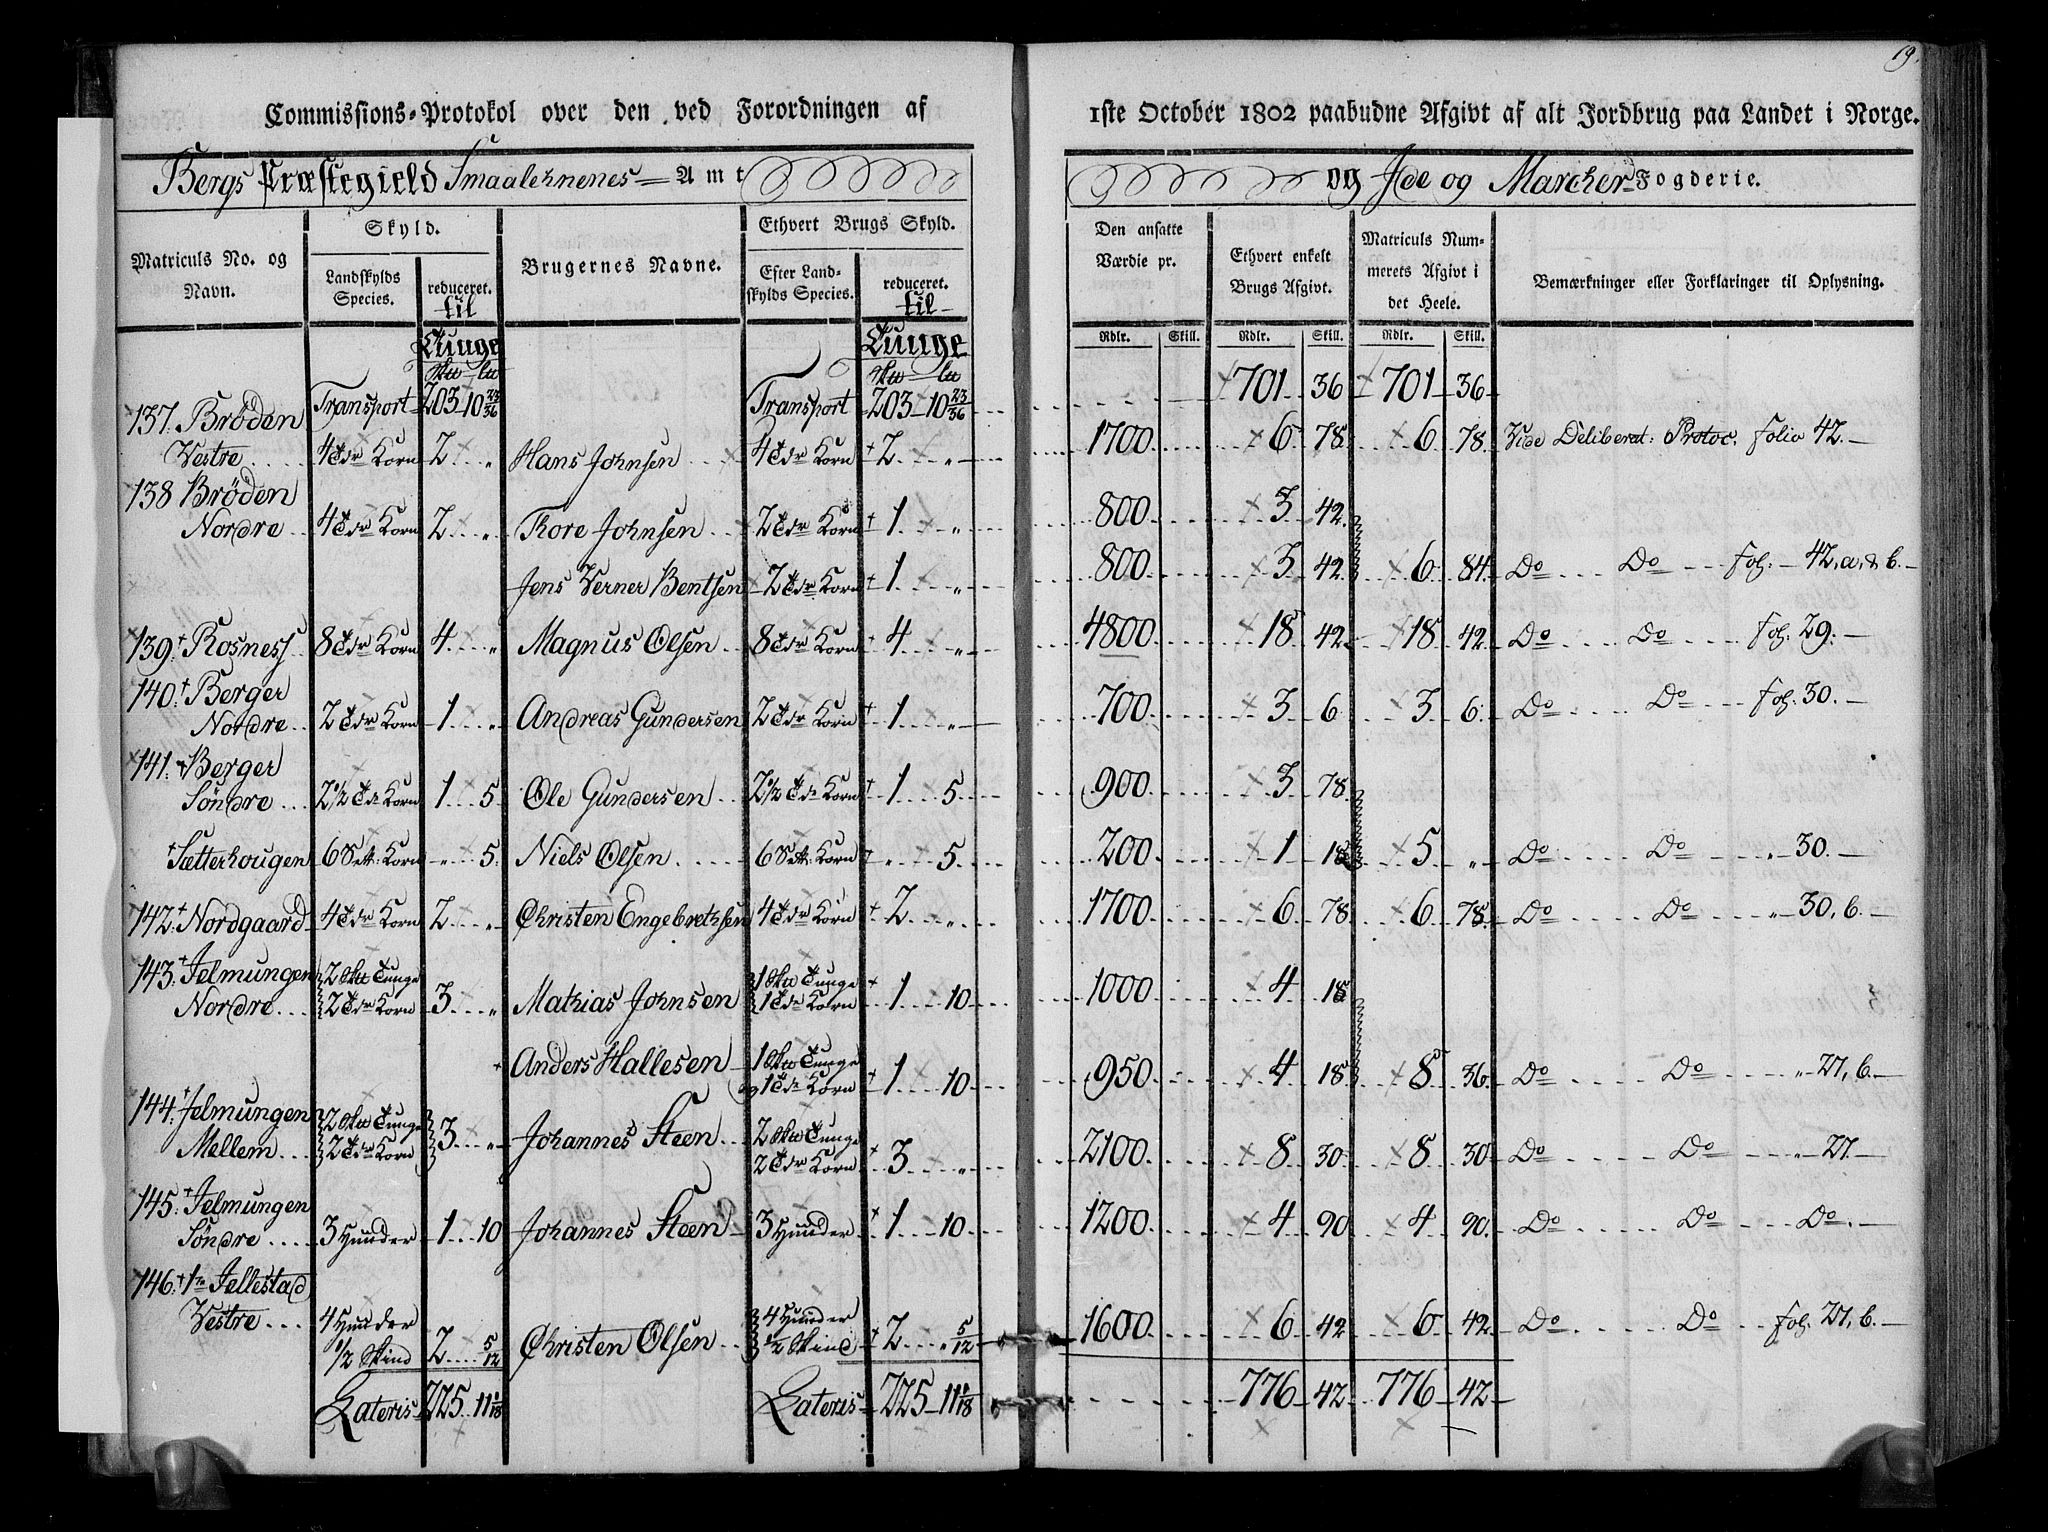 19.
Commissions-Protokol over den ved Forordningen af 1ste October 1802 paabudne Afgivt af alt Jordbrug paa Landet i Norge.
Bergs Præstegield Smaalehnenes Amt og Ide og Marcher Fogderie.
Matriculs No. og Navn. | Skyld. | Brugernes Navne. | Ethvert Brugs Skyld. | Den ansatte Værdie pr. | Ethvert enkelt Brugs Afgivt. | Matriculs Nummerets Afgivt i det Heele. | Bemærkninger eller Forklaringer til Oplysning.
Landskylds Species. | reduceret. til Tunge | Efter Landskylds Species. | reduceret. til Tunge | Rdlr. | Skill. | Rdlr. | Skill. | Rdlr. | Skill.
Transport | 203 - 10 23/36 | Transport | 203 - 10 23/36 | 701 | 36 | 701 | 36
137. Bröden Vestre | 4 Tdr Korn | 2 " | Hans Johnsen | 4 Tdr Korn | 2 " | 1700 | 6 | 78 | 6 | 78 | Vide Deliberat: Protoc. folio 42.
138 Bröden Nordre | 4 Tdr Korn | 2 " | Thore Johnsen | 2 Tdr Korn | 1 " | 800 | 3 | 42
Jens Verner Bentsen | 2 Tdr Korn | 1 " | 800 | 3 | 42 | 6 | 84 | Do Do fol. 42, a, & b.
139. Rosness | 8 Tdr Korn | 4 " | Magnus Olsen | 8 Tdr Korn | 4 " | 4800 | 18 | 42 | 18 | 42 | Do Do fol. 29.
140. Berger Nordre | 2 Tdr Korn | 1 " | Andreas Gundersen | 2 Tdr Korn | 1 " | 700 | 3 | 6 | 3 | 6 | Do Do fol. 30.
141. Berger Söndre | 2 1/2 Td. Korn | 1 5 | Ole Gundersen | 2 1/2 Td. Korn | 1 5 | 900 | 3 | 78
Sætterhougen | 6 Sett: Korn | " 5. | Niels Olsen | 6 Sett: Korn | " 5. | 200 | 1 | 18 | 5 | " | Do Do " 30.
142. Nordgaard | 4 Tdr Korn | 2 " | Christen Engebretsen | 4 Tdr Korn | 2 " | 1700 | 6 | 78 | 6 | 78 | Do Do " 30, b.
143. Jelmungen Nordre | 2 Skt Tunge 2 Tdr Korn | 3 " | Mathias Johnsen | 1 Skt Tunge 1 Tdr Korn | 1 10 | 1000 | 4 | 18
Anders Hallesen | 1 Skt Tunge og 1 Td. Korn | 1 10 | 950 | 4 | 18 | 8 | 36 | Do Do " 27, b.
144. Jelmungen Mellem | 2 Skt Tunge 2 Tdr Korn | 3 " | Johannes Steen | 2 Skt Tunge 2 Tdr Korn | 3 " | 2100 | 8 | 30 | 8 | 30 | Do Do " 27.
145. Jelmungen Söndre | 3 Hunder | 1 10 | Johannes Steen | 3 Hunder | 1 10 | 1200 | 4 | 90 | 4 | 90 | Do Do Do.
146. Jellestad Vestre | 4 Hunder 1/2 Skind | 2 5/12 | Christen Olsen | 4 Hunder 1/2 Skind | 2 " 5/12 | 1600 | 6 | 42 | 6 | 42 | Do Do fol. 27, b.
Lateris | 225 11 1/18 | Lateris | 225 - 11 1/18 | 776 | 42 | 776 | 42